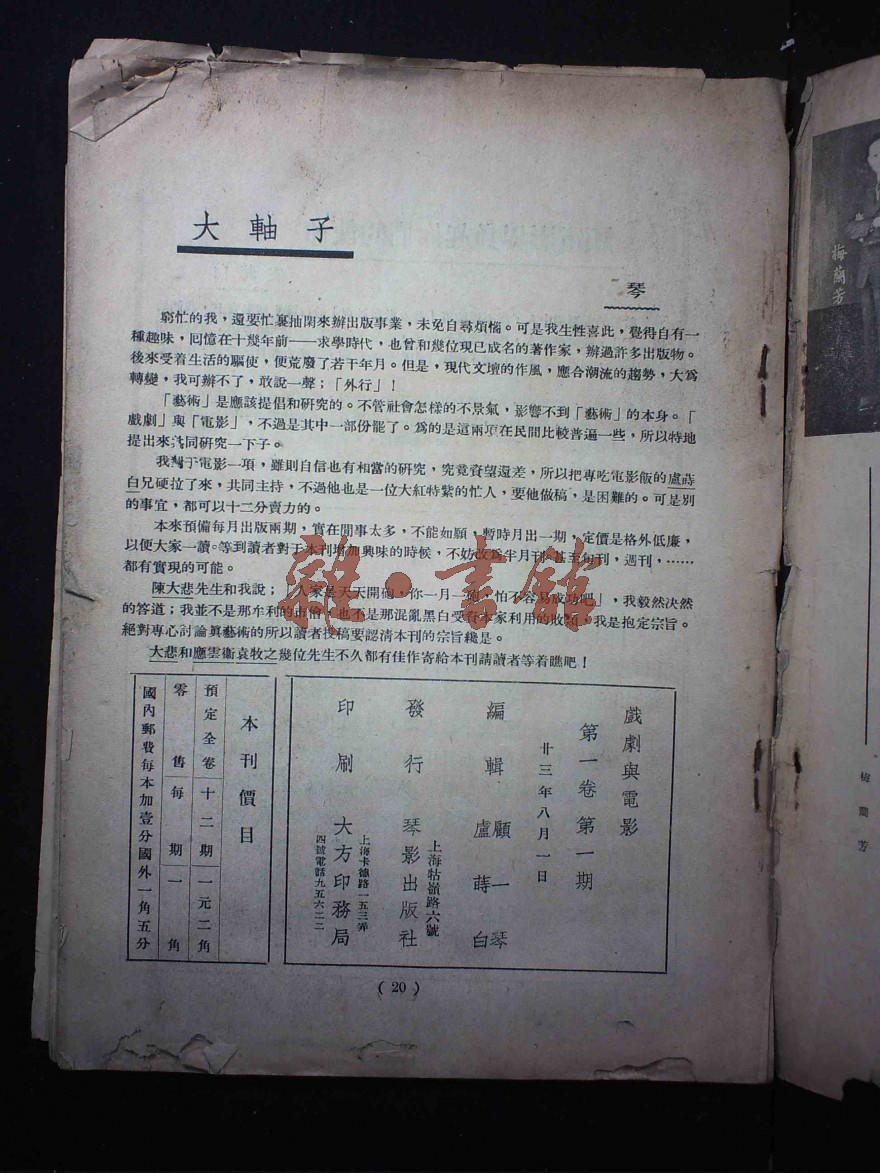 大軸子
琴
窮忙的我，還要忙裏抽閑來辦出版事業，未免自尋煩惱。可是我生性喜此，覺得自有一
種趣味，回憶在十幾年前——求學時代，也曾和幾位現已成名的著作家，辦過許多出版物。
後來受着生活的驅使，便荒廢了若干年月。但是，現代文壇的作風，應合潮流的趨勢，大爲
轉變，我可辦不了，敢說一聲；「外行」！
「藝術」是應該提倡和研究的。不管社會怎樣的不景氣，影響不到「藝術」的本身。「
戲劇」與「電影」，不過是其中一部份罷了。爲的是這兩項在民間比較普遍一些，所以特地
提出來共同研究一下子。
我對于電影一項，雖則自信也有相當的研究，究竟資望還差，所以把專吃電影飯的盧蒔
白兄硬拉了來，共同主持，不過他也是一位大紅特紫的忙人，要他做稿，是困難的。可是別
的事宜，都可以十二分賣力的。
本來預備每月出版兩期，實在閒事太多，不能如願，暫時月出一期，定價是格外低廉，
以便大家一讀。等到讀者對于本刊增加興味的時候，不妨改爲半月刊。甚至旬刊，週刊，……
都有實現的可能。
陳大悲先生和我說；「人家是天天開砲，你一月一砲，怕不容易成功吧」，我毅然決然
的答道；我並不是那牟利的市儈，也不是那混亂黑白受資本家利用的敗類，我是抱定宗旨。
絕對專心討論眞藝術的所以讀者投稿要認清本刊的宗旨纔是。
大悲和應雲衞袁牧之幾位先生不久都有佳作寄給本刊請讀者等着瞧吧！
戲劇與電影
第一卷第一期
廿三年八月一日
編輯 顧一琴
盧蒔白
上海牯嶺路六號
發行 琴影出版社
上海卡德路一五三弄
印刷 大方印務局
四號電話九五六二二
本刊價目
預定全卷十二期一元二角
零售每期一角
國內郵費每本加壹分國外一角五分
(20)
雜·書館
梅蘭芳
梅蘭芳